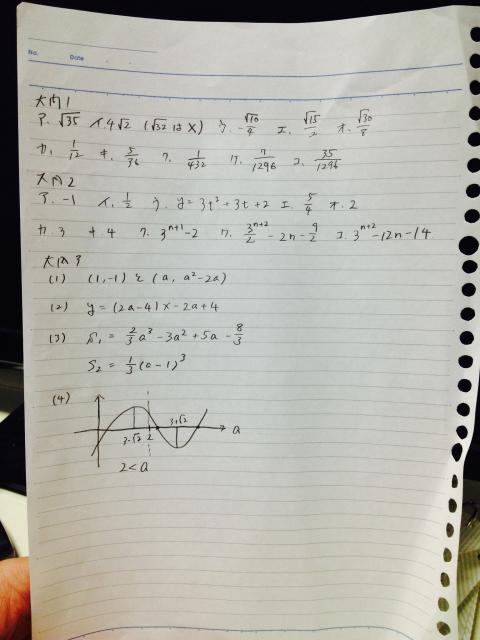 No.
Date
大問1
ア. √35 イ. 4√2 (√32は×) ウ. -√10/4 エ. √15/2 オ. √30/8
カ. 1/12 キ. 5/36 ク. 1/432 ケ. 7/1296 コ. 35/1296
大問2
ア. -1 イ. 1/2 ウ. y=3t²+3t+2 エ. 5/4 オ. 2
カ. 3 キ. 4 ク. 3^(n+1)-2 ケ. 3^(n+2)/2 -2n- 9/2 コ. 3^(n+2)-12n-14
大問3
(1) (1,-1) と (a, a²-2a)
(2) y=(2a-4)x-2a+4
(3) S₁=2/3a³-3a²+5a-8/3
S₂=1/3(a-1)³
(4)
3-√2 2 3+√2 a
2<a